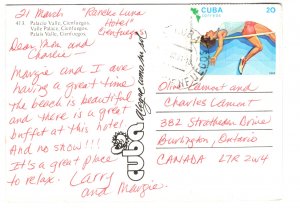 21 March "Rancho Luna
Hotel"
Cienfuegos
413 - Palacio Valle, Cienfuegos.
Valle Palace, Cienfuegos.
Palais Valle, Cienfuegos.
Dear Mom and
Charlie -
Margie and I are
having a great time
the beach is beautiful
and there is a great
buffet at this hotel
And no snow!!!
It's a great place
to relax. Larry
and Margie.
cuba
alegre como su sol
CUBA
correos
20
Olive Lamont and
Charles Lamont
382 Strathearn Drive
Burlington, Ontario
CANADA L7R 2W4